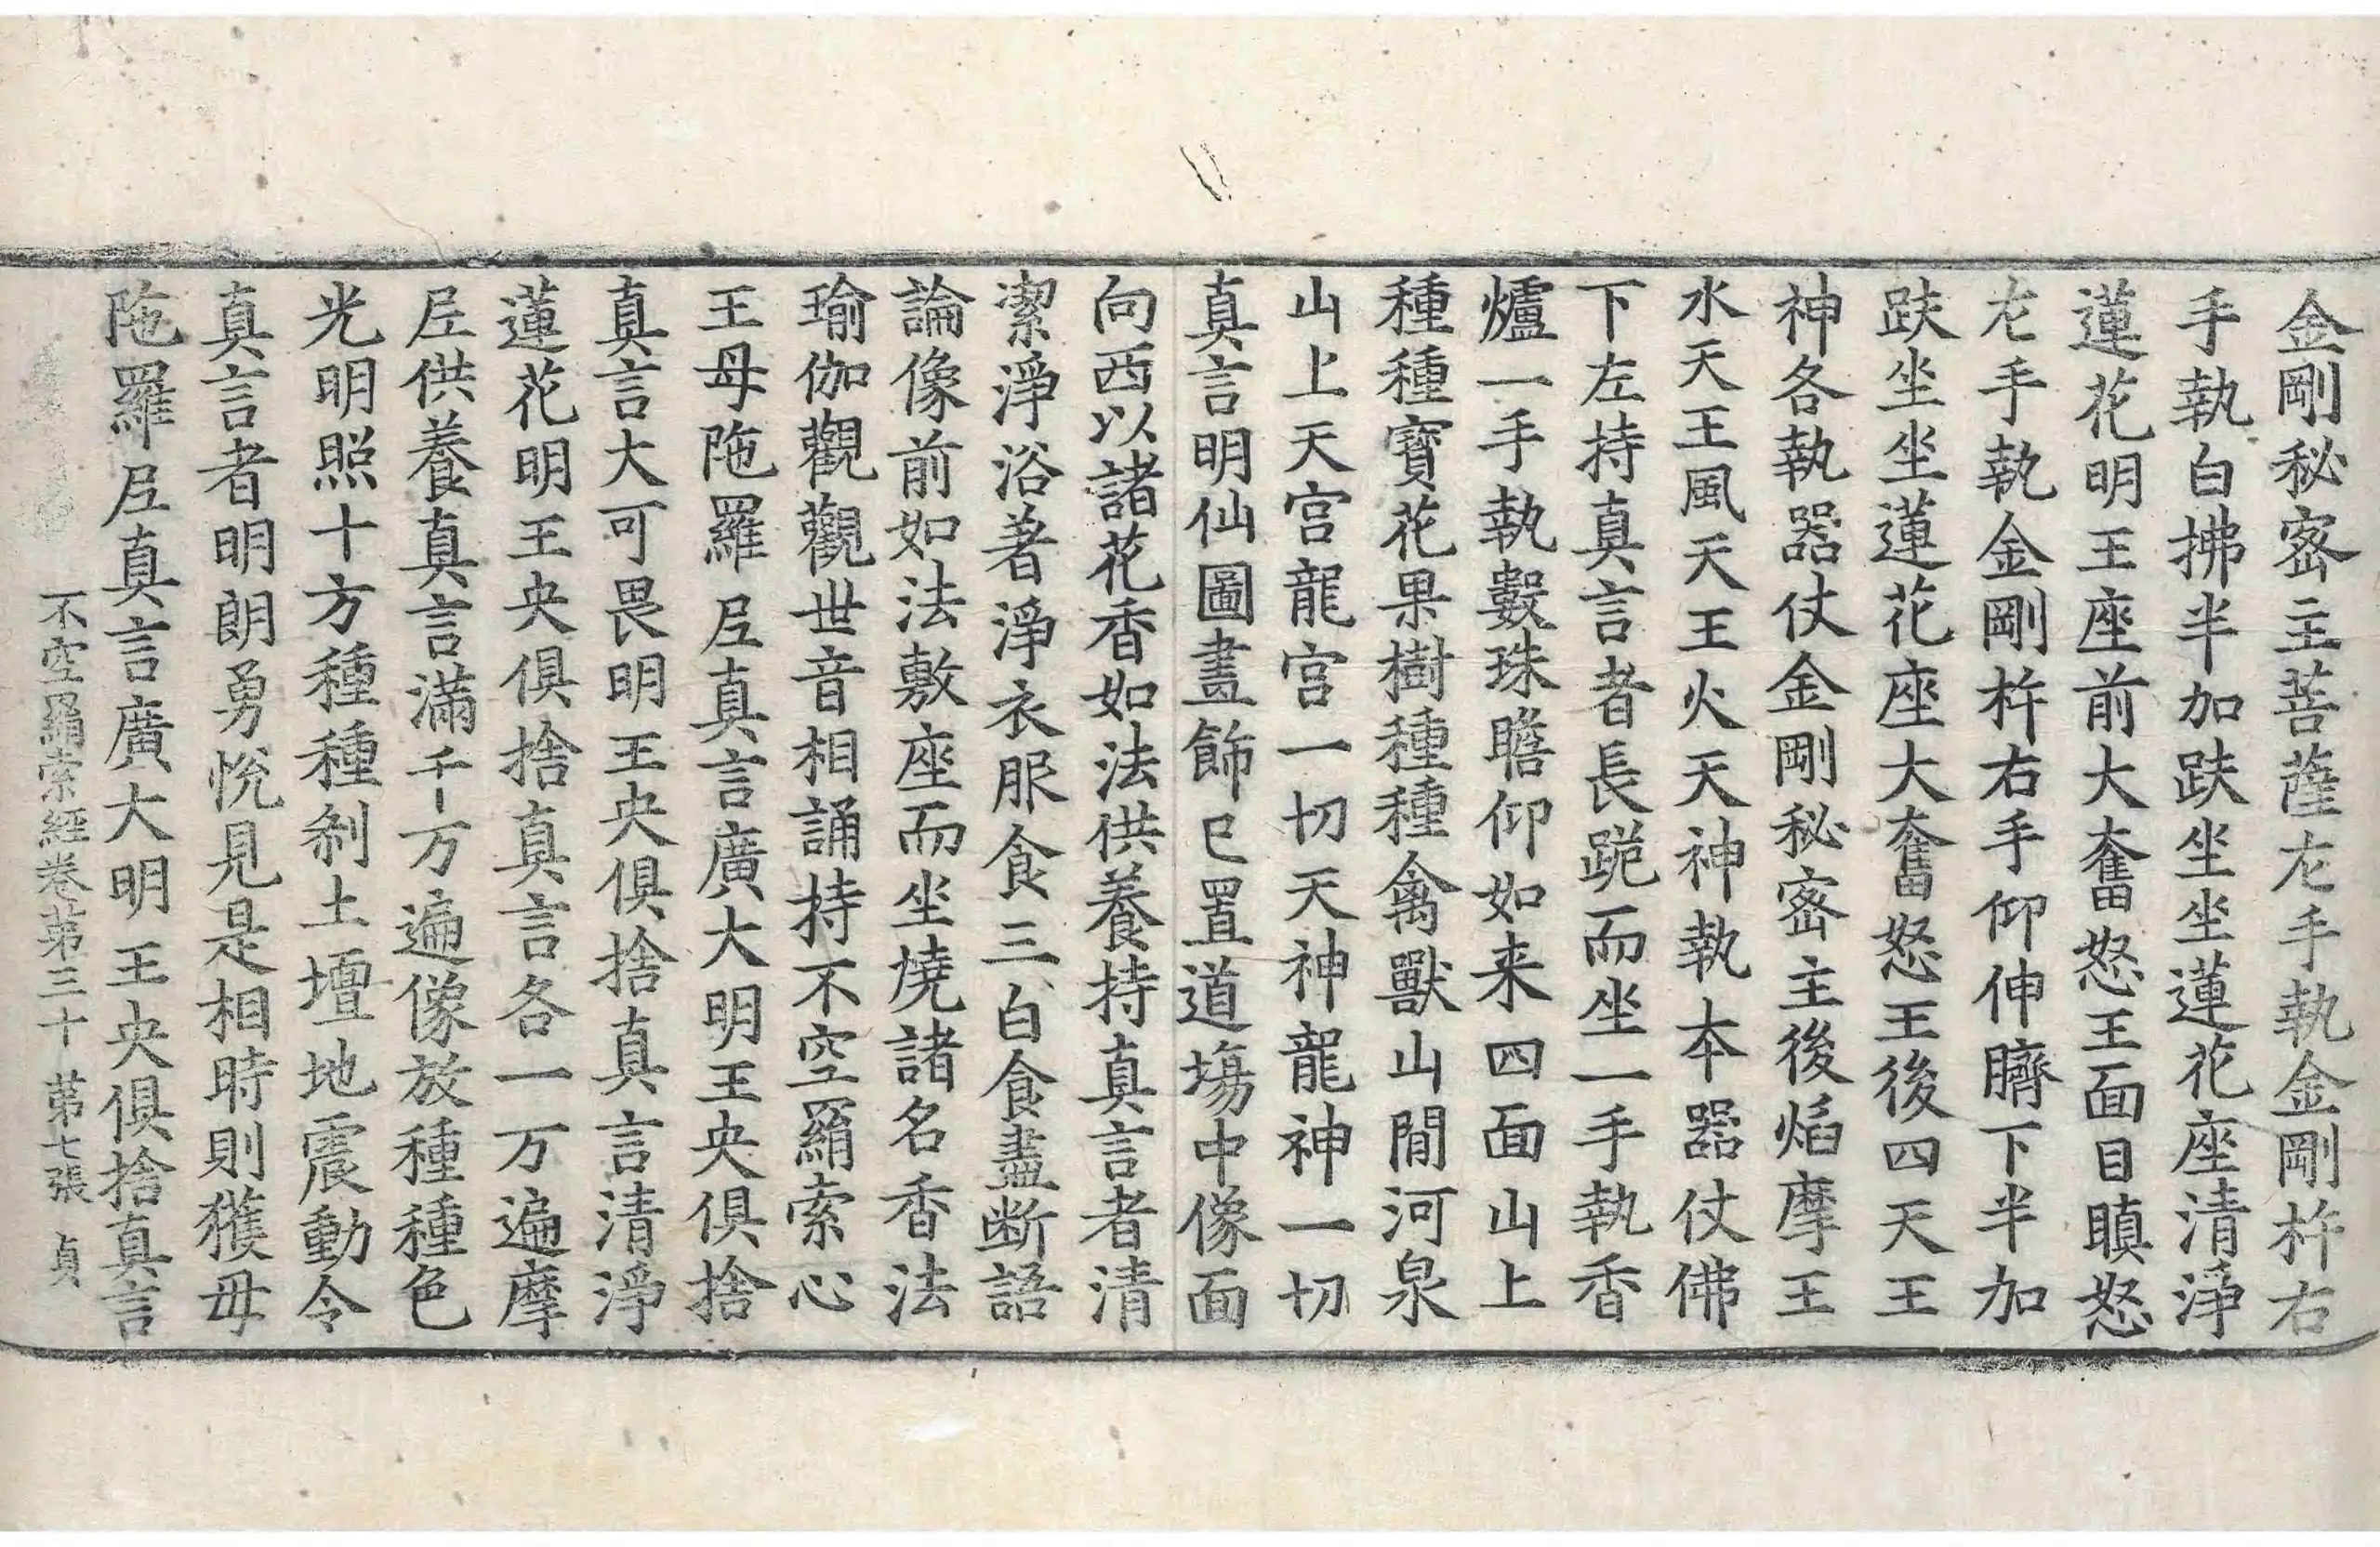 金剛秘密主菩薩左手執金剛杵右
手執白拂半加趺坐坐蓮花座清淨
蓮花明王座前大奮怒王面目瞋怒
左手執金剛杵右手仰伸臍下半加
趺坐坐蓮花座大奮怒王後四天王
神各執器仗金剛秘密主後焰摩王
水天王風天王火天神執本器仗佛
下左持真言者長跪而坐一手執香
爐一手執數珠瞻仰如来四面山上
種種寶花果樹種種禽獸山間河泉
山上天宮龍宮一切天神龍神一切
真言明仙圖畫飾已置道場中像面
向西以諸花香如法供養持真言者清
潔淨浴著淨衣服食三白食盡断語
論像前如法敷座而坐燒諸名香法
瑜伽觀觀世音相誦持不空羂索心
王母陁羅尼真言廣大明王央俱捨
真言大可畏明王央俱捨真言清淨
蓮花明王央俱捨真言各一万遍摩
尼供養真言滿千万遍像放種種色
光明照十方種種剎土壇地震動令
真言者明朗勇悅見是相時則獲毋
陁羅尼真言廣大明王央俱捨真言
不空羂索經卷苐三十 苐七張 貞